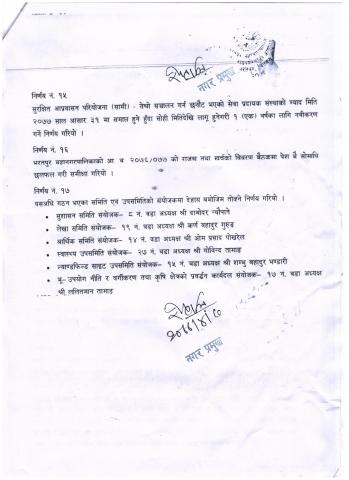 नगर प्रमुख
निर्णय नं. १५
सुरक्षित आप्रवासन परियोजना (सामी) - तेस्रो सञ्चालन गर्न छनौट भएको सेवा प्रदायक संस्थाको म्याद मिति
२०७७ साल आसार ३१ मा समाप्त हुने हुँदा सोही मितिदेखि लागु हुनेगरी १ (एक) वर्षका लागि नवीकरण
गर्ने निर्णय गरियो ।
निर्णय नं. १६
भरतपुर महानगरपालिकाको आ व २०७६/०७७ को राजस्व तथा खर्चको विवरण बैठकमा पेश भै सोमाथि
छलफल गरी समीक्षा गरियो ।
निर्णय नं. १७
यसअघि गठन भएका समिति एवं उपसमितिको संयोजकमा देहाय बमोजिम तोक्ने निर्णय गरियो ।
• सुशासन समिति संयोजक- ८ नं. वडा अध्यक्ष श्री दामोदर न्यौपाने
• लेखा समिति संयोजक- १९ नं. वडा अध्यक्ष श्री कर्ण बहादुर गुरुङ
• आर्थिक समिति संयोजक- १४ नं. वडा अध्यक्ष श्री ओम प्रसाद पोखरेल
• स्वास्थ्य उपसमिति संयोजक- २७ नं. वडा अध्यक्ष श्री गोविन्द तामाङ
• ल्याण्डफिल्ड साइट उपसमिति संयोजक- १५ नं. वडा अध्यक्ष श्री शम्भु बहादुर भण्डारी
• भू-उपयोग नीति र वर्गीकरण तथा कृषि क्षेत्रको प्रवर्द्धन कार्यदल संयोजक- १७ नं. वडा अध्यक्ष
श्री ललितमान तामाङ
नगर प्रमुख